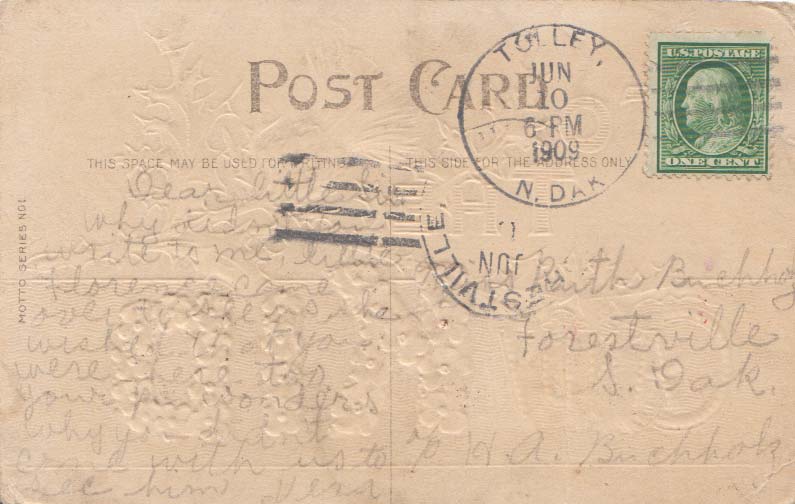 POST CARD
THIS SPACE MAY BE USED FOR WRITING
THIS SIDE FOR THE ADDRESS ONLY
MOTTO SERIES NO1.
TOLLEY,
JUN
10
6 PM
1909
N. DAK
U.S. POSTAGE
ONE CENT
JUN
Dear little
why
write to me, little
Florence came
over to see us she
wished that you
were here too
your wonders
why you didnt
come with us to
see him Vera
Ruth Buchholz
Forestville
S. Dak.
% H. A. Buchholz